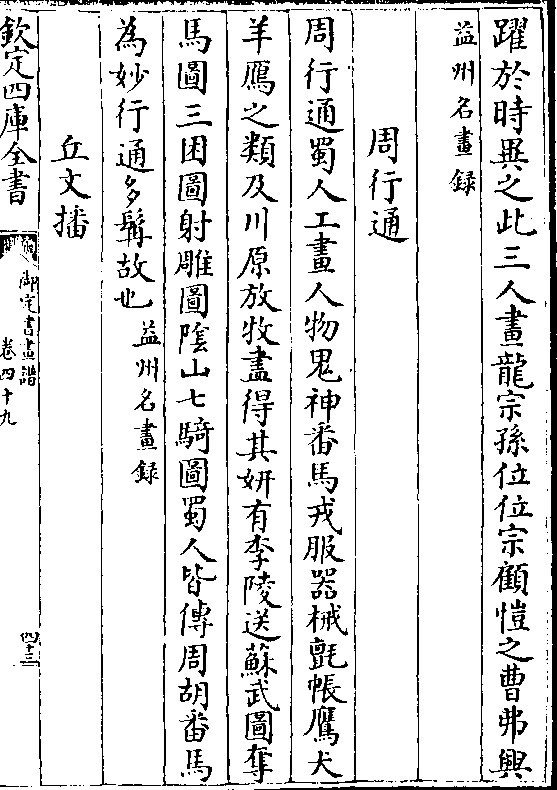 躍於時異之此三人畫龍宗孫位位宗顧愷之曹弗興
益州名畫録
周行通
周行通蜀人工畫人物鬼神番馬戎服器械氊帳鷹犬
羊鴈之類及川原放牧盡得其妍有李陵送蘇武圖奪
馬圖三困圖射雕圖陰山七騎圖蜀人皆傳周胡番馬
為妙行通多髯故也益州名畫録
丘文播
欽定四庫全書
御定書畫譜
卷四十九
四十三